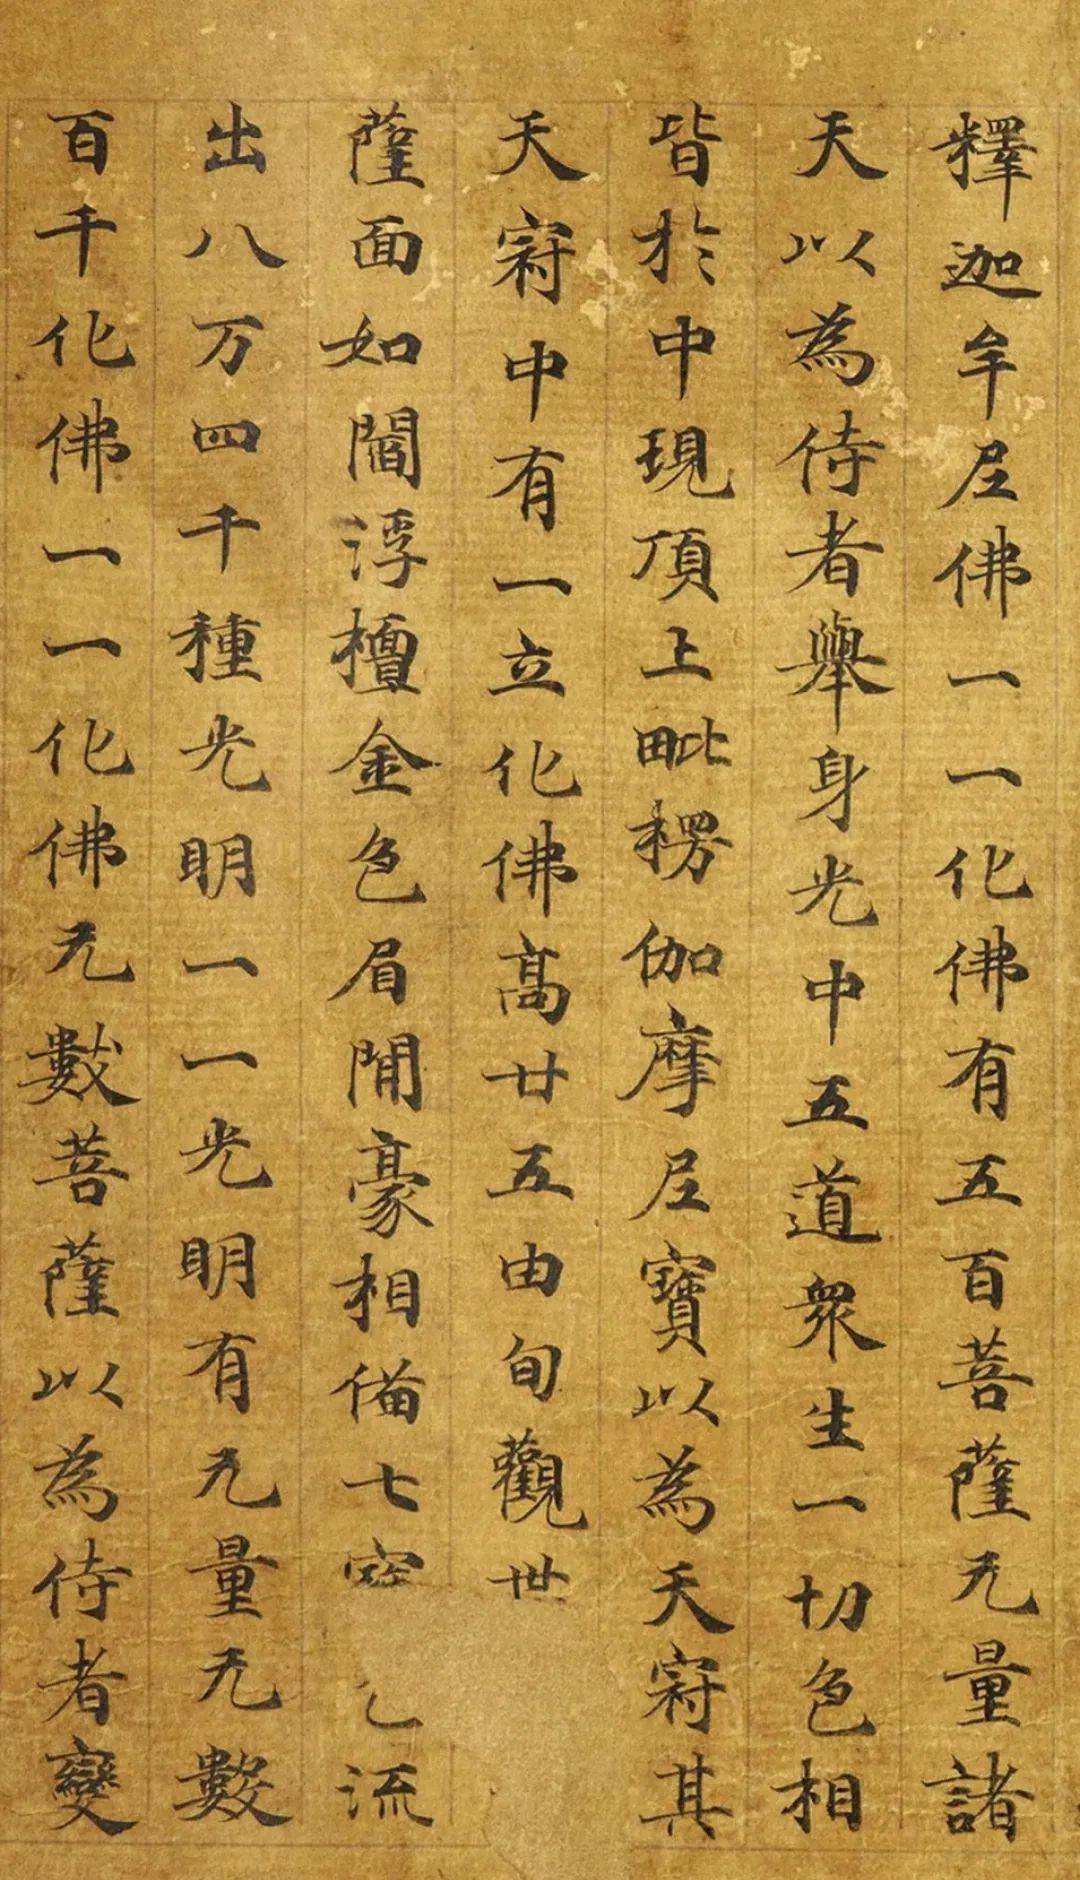 釋迦牟尼佛一一化佛有五百菩薩无量諸
天以為侍者舉身光中五道眾生一切色相
皆於中現頂上毗楞伽摩尼寶以為天冠其
天冠中有一立化佛高廿五由旬觀世
薩面如閻浮檀金色眉間豪相俻七寶色流
出八万四千種光明一一光明有无量无數
百千化佛一一化佛无數菩薩以為侍者變